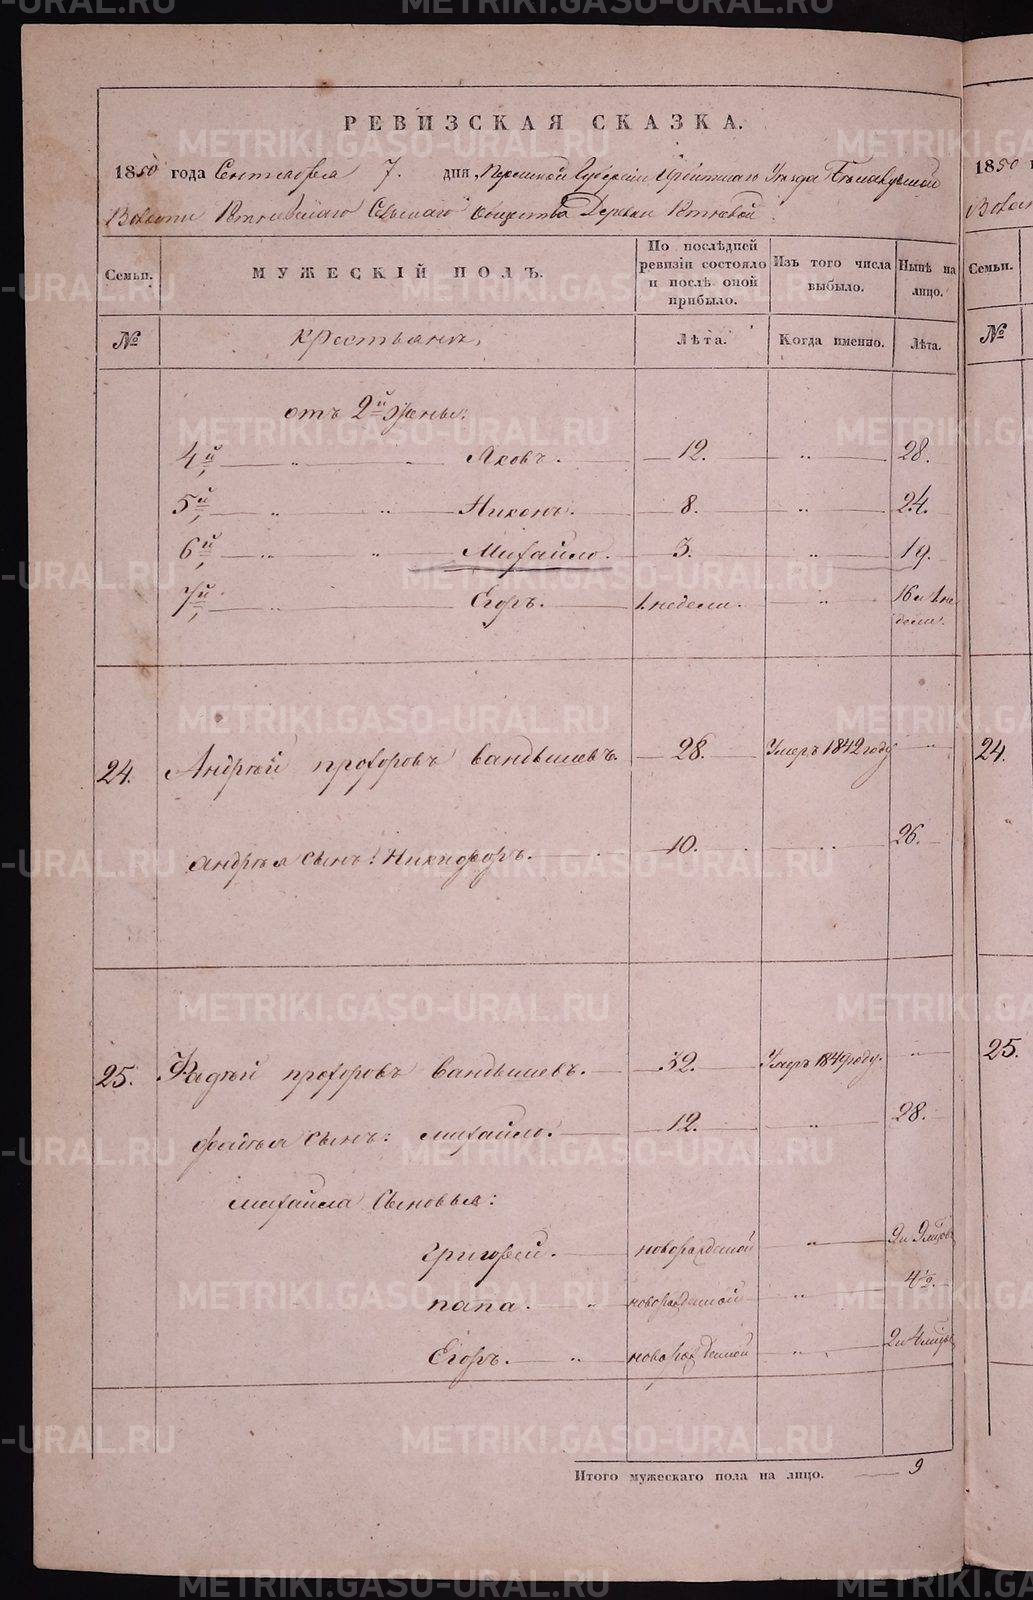 METRIKI.GASO-URAL.RU
РЕВИЗСКАЯ СКАЗКА.
1850 года Сентября 7. дня Пермской Губерніи Ирбитскаго Уезда
Волости Сельскаго Общества Деревни
Семьи. МУЖЕСКІЙ ПОЛЪ. По послѣдней ревизіи состояло и послѣ оной прибыло. Изъ того числа выбыло. Нынѣ на лицо.
№ крестьянъ, Лѣта. Когда именно. Лѣта.
отъ 2й жены:
4й „ „ Яковъ. 12. „ 28.
5й „ „ Никонъ. 8. „ 24.
6й „ „ Михайло. 3. „ 19.
7й „ Егоръ. 1. недели. „ 16 и 1. недели.
24. Андрѣй прохоровъ вандышевъ. 28. Умеръ 1842 году „
Андрѣя Сынъ: Никифоръ. 10. „ 26.
25. Фадѣй прохоровъ Вандышевъ. 32. Умеръ 1849 году. „
фадѣя Сынъ: михайло. 12. „ 28.
михаила Сыновья:
григорей. новорожденой „ 9 и 9 мцовъ
папа. „ новорожденой „ 4хъ.
Егоръ. „ новорожденой „ 2 и 4 мцовъ
Итого мужескаго пола на лицо. 9
1850
Семьи.
№
24.
25.